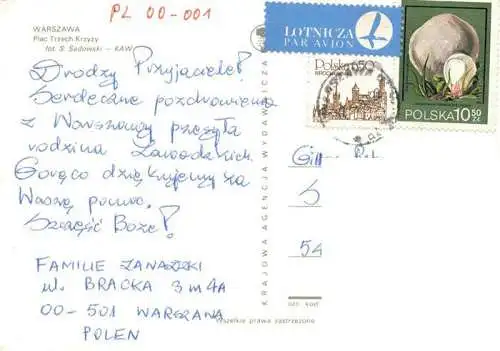 PL 00-001
WARSZAWA
Plac Trzech Krzyży
fot. S. Sadowski — KAW
LOTNICZA
PAR AVION
Polska 650
POLSKA 10.50
Drodzy Przyjaciele!
Serdeczne pozdrowienia
z Warszawy przesyła
rodzina
Gorąco dziękujemy za
Waszą pomoc.
Szczęść Boże!
FAMILIE
ul. BRACKA 3 m 4A
00-501 WARSZAWA
POLEN
KRAJOWA AGENCJA WYDAWNICZA
S
54
Wszelkie prawa zastrzeżone